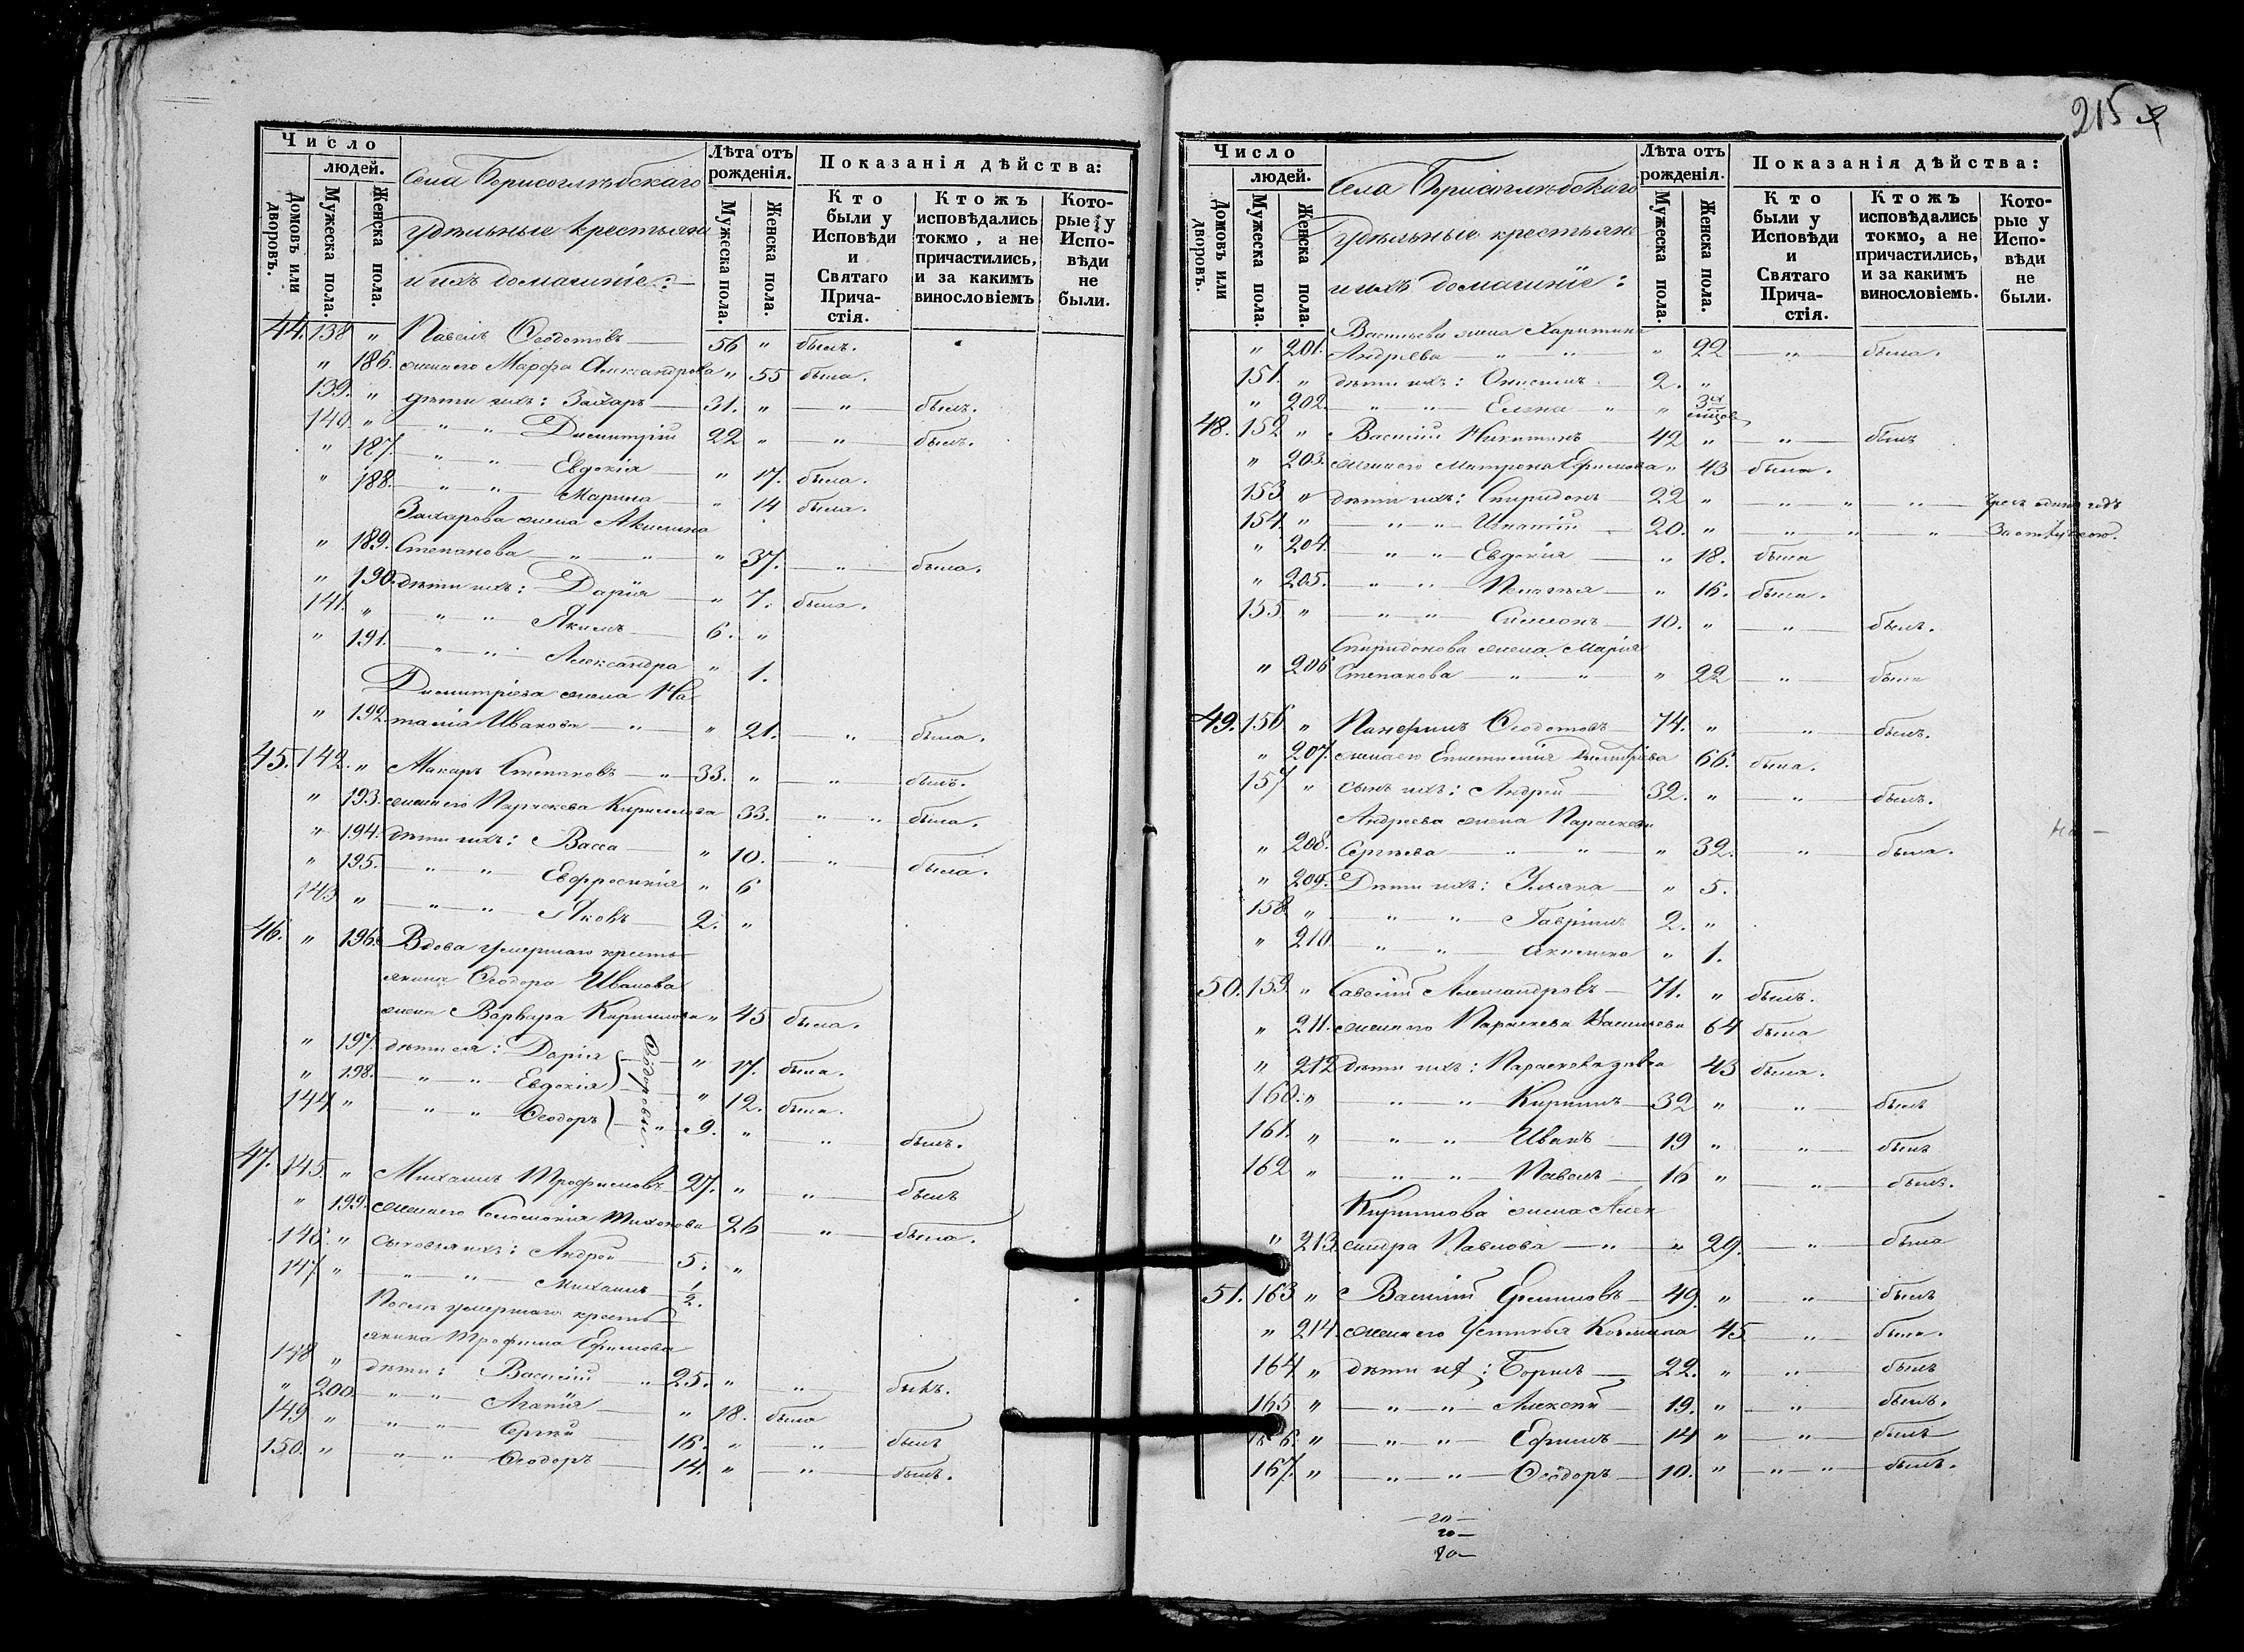 Число
людей.
Домовъ или дворовъ.
Мужеска пола.
Женска пола.
Села Борисоглѣбскаго
удѣльные крестьяне
и ихъ домашніе:
Лѣта отъ рожденія.
Мужеска пола.
Женска пола.
Показанія дѣйства:
Кто были у Исповѣди и Святаго Прича-стія.
Ктожъ исповѣдались токмо, а не причастились, и за какимъ винословіемъ
Кото-рые у Испо-вѣди не были.
44. 138 " Павелъ Ѳеодотовъ — 56 " былъ.
" 186. жена его Марѳа Александрова " 55 была.
139. " дѣти ихъ: Захаръ — 31. " — " — былъ.
140. " — " " Димитрій 22 " — " — былъ.
" 187. — " " — Евдокія — " 17. была.
" 188. — " " — Марина — " 14 была.
Захарова жена Акилина
" 189. Степанова — " — " — " 37. — " — была.
" 190. дѣти ихъ: Дарія — " 7. была.
141. " — " " Якимъ — 6. "
" 191. — " " — Александра " 1.
Димитріева жена На
" 192. талія Иванова — " — " 21. — " — была.
45. 142. " Макаръ Степановъ — " — 33. " — " — былъ.
" 193. жена его Параскева Кириллова 33. — " " была.
" 194. дѣти ихъ: Васса — " 10. — " — была.
" 195. — " " Евфросинія " 6
143 " — " " — Яковъ — 2. "
46. " 196. Вдова умершаго кресть
янина Ѳеодора Иванова
жена Варвара Кириллова " 45 была.
" 197. дѣти ея: Дарія — " 17. была.
" 198. — " " Евдокія — " 12. была.
144 " — " " Ѳеодоръ — " 9. " — " — былъ.
Ѳеодоровы.
47. 145. " Михаилъ Трофимовъ 27. " — " — былъ
" 199. жена его Соломонія Тихонова 26 — " — была.
146. " сыновья ихъ: Андрей — 5. "
147 " — " — " — Михаилъ ½.
Послѣ умершаго кресть
янина Трофима Ефимова
148 " дѣти: Василій — " 25. " — " — былъ.
" 200. — " " — Агапія — " 18. была
149 " — " " — Сергѣй — 16. " — " — былъ
150. " — " " — Ѳеодоръ — 14. " — " — былъ.
215
Число
людей.
Домовъ или дворовъ.
Мужеска пола.
Женска пола.
Села Борисоглѣбскаго
удѣльные крестьяне
и ихъ домашніе:
Лѣта отъ рожденія.
Мужеска пола.
Женска пола.
Показанія дѣйства:
Кто были у Исповѣди и Святаго Прича-стія.
Ктожъ исповѣдались токмо, а не причастились, и за какимъ винословіемъ.
Кото-рые у Испо-вѣди не были.
Васильева жена Харитина
" 201. Андреева — " — " — " 22 — " — была.
151. " дѣти ихъ: Онисимъ — 2. "
" 202. — " " — Елена — " " 3х
48. 152 " Василій Никитинъ — 42 " — " — былъ
" 203. жена его Матрона Ефимова " 43 была.
153. " дѣти ихъ: Спиридонъ — 22 " — " — " — " — Чрезъ одинъ годъ
154. " — " — " — Игнатій — 20. " — " — " — " — За отлучкою.
" 204. — " " — Евдокія — " 18. была
" 205. — " — " — Пелагія — " 16. была.
155. " — " — " — Симеонъ — 10. " — " — былъ.
Спиридонова жена Марія
" 206 Степанова — " — " — " 22 — " — была
49. 156 " Панфилъ Ѳеодотовъ — 74. " — " — былъ.
" 207. жена его Епистимія Димитріева 66. была.
157 " сынъ ихъ: Андрей — 32. " — " — былъ.
Андреева жена Параскева
" 208. Сергѣева — " — " — " 32. — " — была.
" 209. Дѣти ихъ: Ульяна — " 5.
158 " — " — " — Гавріилъ 2. "
" 210. — " — " — Акилина " 1.
50. 159. " Савелій Александровъ — 71. " былъ.
" 211. жена его Параскева Васильева 64 была
" 212 дѣти ихъ: Параскева 43 была.
160. " — " — " — Кириллъ — 32 " — " — былъ
161. " — " — " — Иванъ — 19 " — " — былъ
162 " — " — " — Павелъ — 16 " — " — былъ.
Кириллова жена Алек
" 213. сандра Павлова — " — " 29. — " — была
51. 163 " Василій Ефимовъ — 49. " — " — былъ
" 214. жена его Устинья Козьмина 45 — " — была.
164 " дѣти их: Борисъ — 22. " — " — былъ
165 " — " — " — Алексѣй — 19. " — " — былъ.
166. " — " — " — Ефимъ — 14 " — " — былъ
167. " — " — " — Ѳеодоръ — 10. " — " — " — былъ.
— 20 —
20 —
20 —